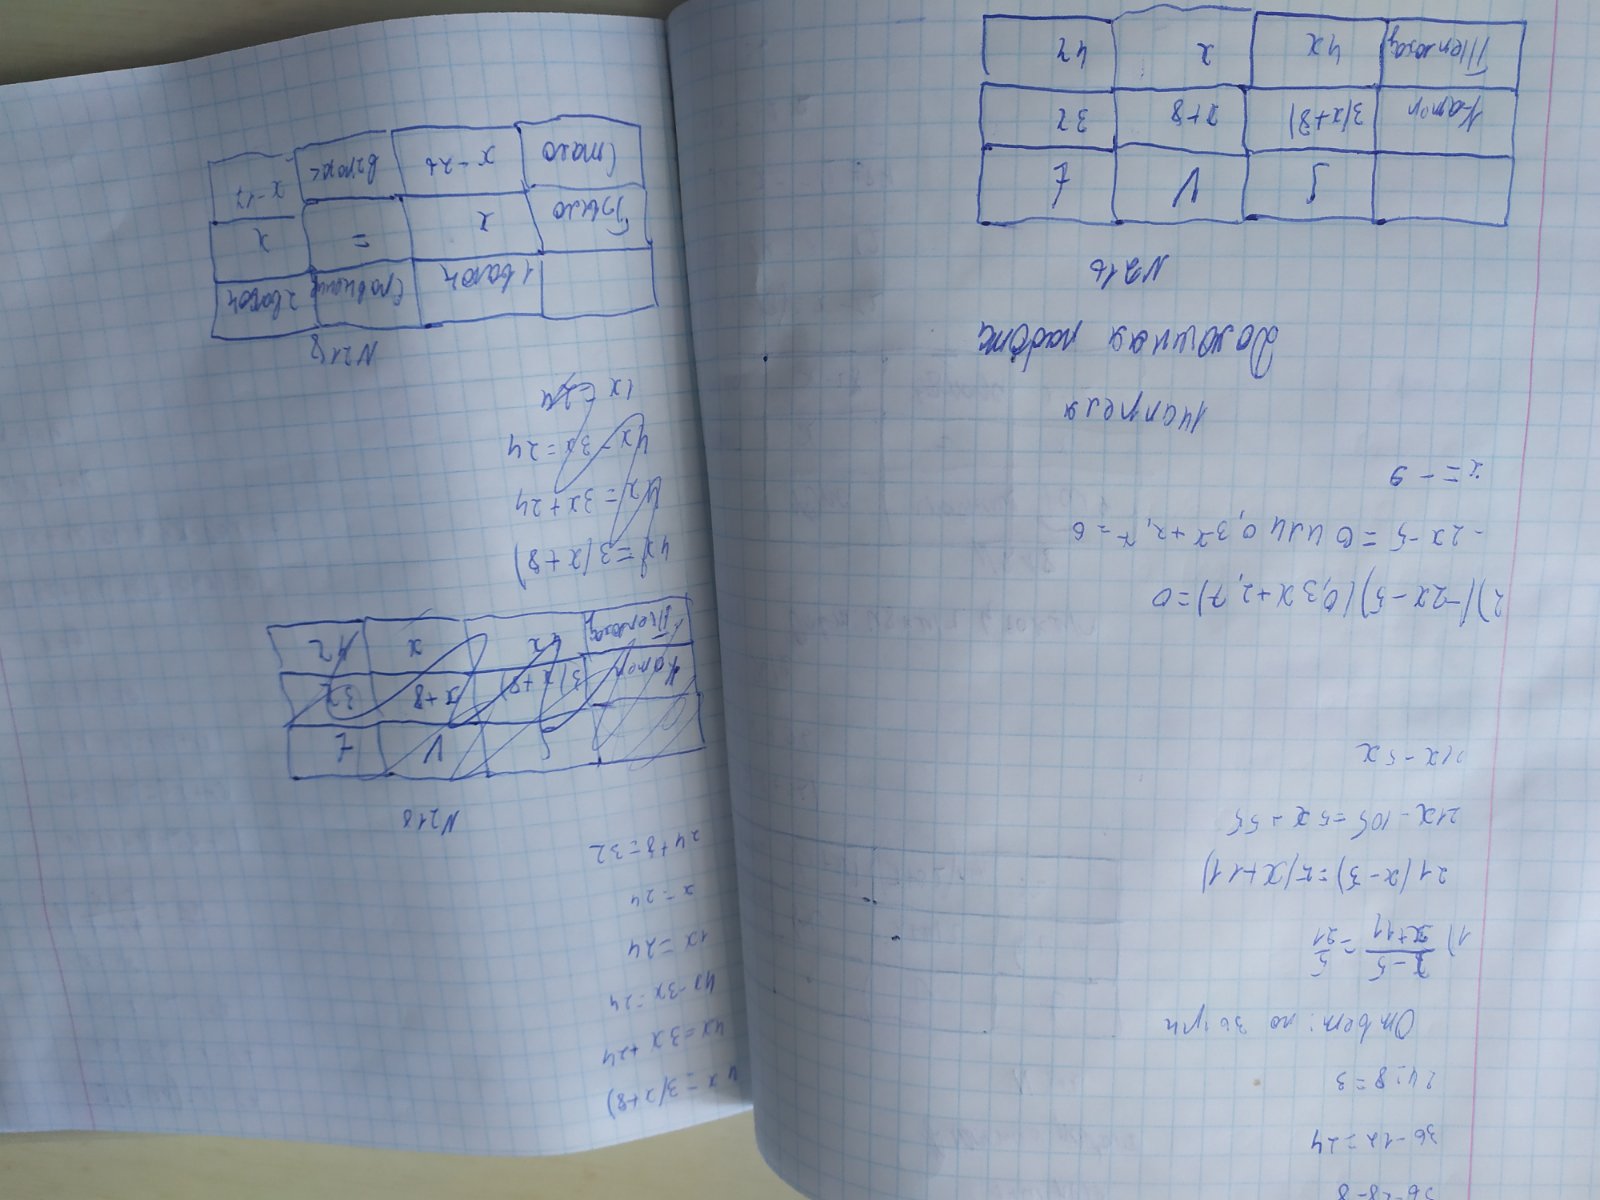 36-28=8
36-12=24
24:8=3
Ответ: по 3 
1) x-5/x+11 = 5/21
21(x-5)=5(x+11)
21x-105=5x+55
21x-5x
2) (-2x-5)(0,3x+2,7)=0
-2x-5=0 или 0,3x+2,7=0
x=-9
14 апреля
Домашняя работа
N216
S V t
Катер 3(x+8) x+8 3ч
Теплоход 4x x 4ч
4x=3(x+8)
4x=3x+24
4x-3x=24
1x=24
x=24
24+8=32
N218
S V t
Катер 3(x+8) x+8 3ч
Теплоход 4x x 4ч
4x=3(x+8)
4x=3x+24
4x-3x=24
1x=24
N218
1 вагон 2 вагон
Было x = x
Стало x-26 x-17